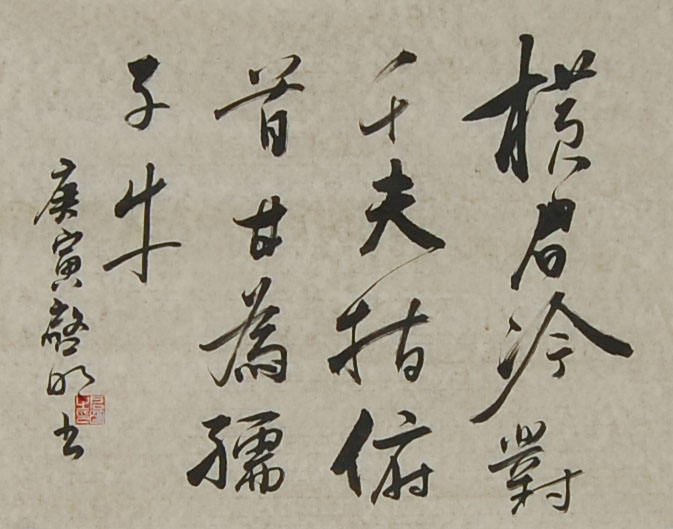 横眉冷對
千夫指俯
首甘為孺
子牛
庚寅啓明书